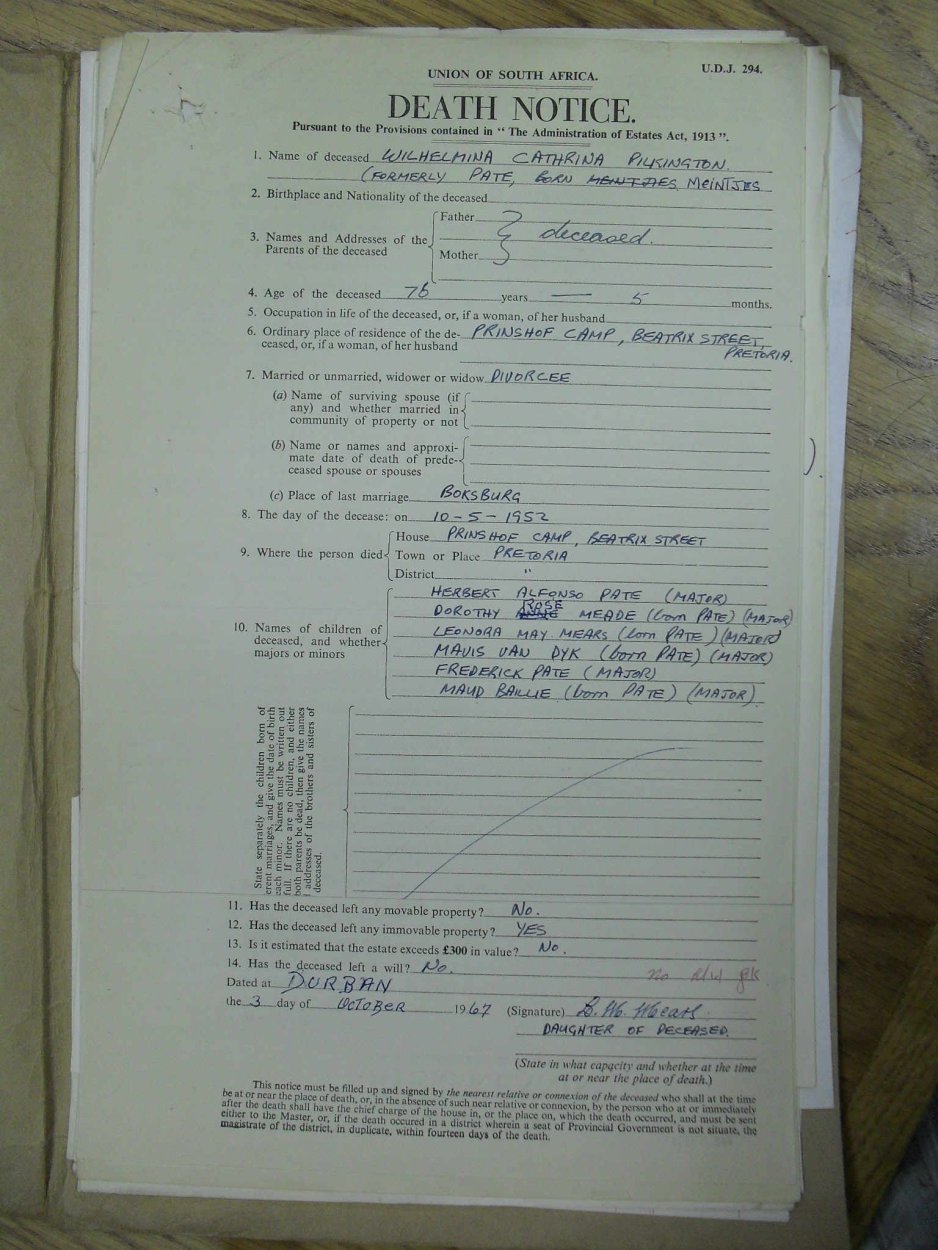 U.D.J. 294.
UNION OF SOUTH AFRICA.
DEATH NOTICE.
Pursuant to the Provisions contained in "The Administration of Estates Act, 1913".
1. Name of deceased WILHELMINA CATHRINA PILKINGTON.
(FORMERLY PATE, BORN MEINTJAES MEINTJES
2. Birthplace and Nationality of the deceased
3. Names and Addresses of the Parents of the deceased
Father
deceased.
Mother
4. Age of the deceased 76 years — 5 months.
5. Occupation in life of the deceased, or, if a woman, of her husband
6. Ordinary place of residence of the de- PRINSHOF CAMP, BEATRIX STREET,
ceased, or, if a woman, of her husband PRETORIA.
7. Married or unmarried, widower or widow DIVORCEE
(a) Name of surviving spouse (if
any) and whether married in
community of property or not
(b) Name or names and approxi-
mate date of death of prede-
ceased spouse or spouses
(c) Place of last marriage BOKSBURG
8. The day of the decease: on 10-5-1952
9. Where the person died
House PRINSHOF CAMP, BEATRIX STREET
Town or Place PRETORIA
District "
10. Names of children of
deceased, and whether
majors or minors
HERBERT ALFONSO PATE (MAJOR)
DOROTHY ROSE MEADE (born PATE) (MAJOR)
LEONORA MAY MEARS (born PATE) (MAJOR)
MAVIS VAN DYK (born PATE) (MAJOR)
FREDERICK PATE (MAJOR)
MAUD BAILLIE (born PATE) (MAJOR)
State separately the children born of
erent marriages, and give the date of birth
each minor. Names must be written out
full. If there are no children, and either
both parents be dead, then give the names
addresses of the brothers and sisters of
deceased.
11. Has the deceased left any movable property? No.
12. Has the deceased left any immovable property? YES
13. Is it estimated that the estate exceeds £300 in value? No.
14. Has the deceased left a will? No.
no
Dated at DURBAN
the 3 day of OCTOBER 1967 (Signature) L. M. Mears.
DAUGHTER OF DECEASED.
(State in what capacity and whether at the time
at or near the place of death.)
This notice must be filled up and signed by the nearest relative or connexion of the deceased who shall at the time
be at or near the place of death, or, in the absence of such near relative or connexion, by the person who at or immediately
after the death shall have the chief charge of the house in, or the place on, which the death occurred, and must be sent
either to the Master, or, if the death occured in a district wherein a seat of Provincial Government is not situate, the
magistrate of the district, in duplicate, within fourteen days of the death.